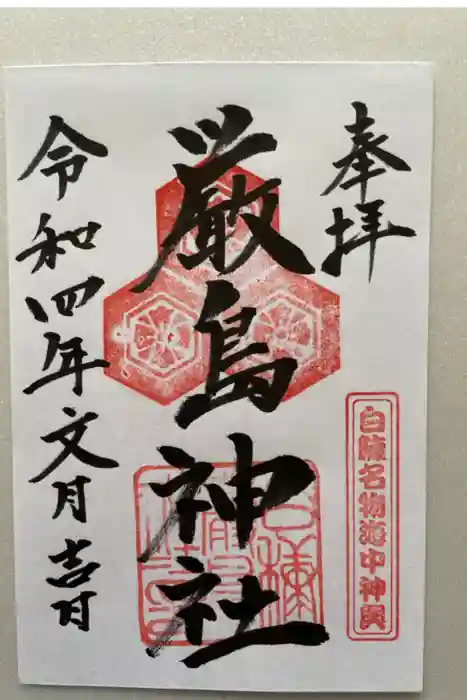 奉拝
白駒名物海中神輿
厳島神社
令和四年文月吉日